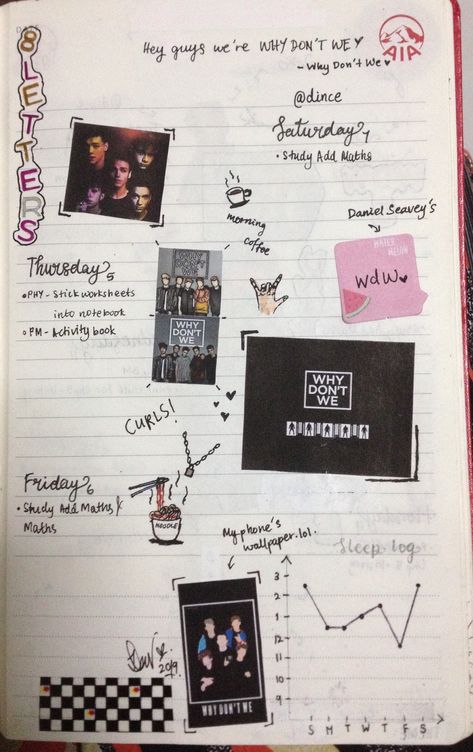 8 LETTERS
Hey guys we're WHY DON'T WE
- Why Don't We
AIA
@dince
Saturday 7
• Study Add Maths
morning
coffee
Daniel Seavey's
WATER
MELON
wdw
Thursday 5
• PHY - Stick worksheets
into notebook
• PM - Activity book
WHY
DON'T
WE
WHY
DON'T
WE
CURLS!
Friday 6
• Study Add Maths
Maths
NOODLE
My phone's
wallpaper.lol.
WHY DON'T WE
2019
Sleep log
3
2
1
12
11
10
9
S M T W T F S